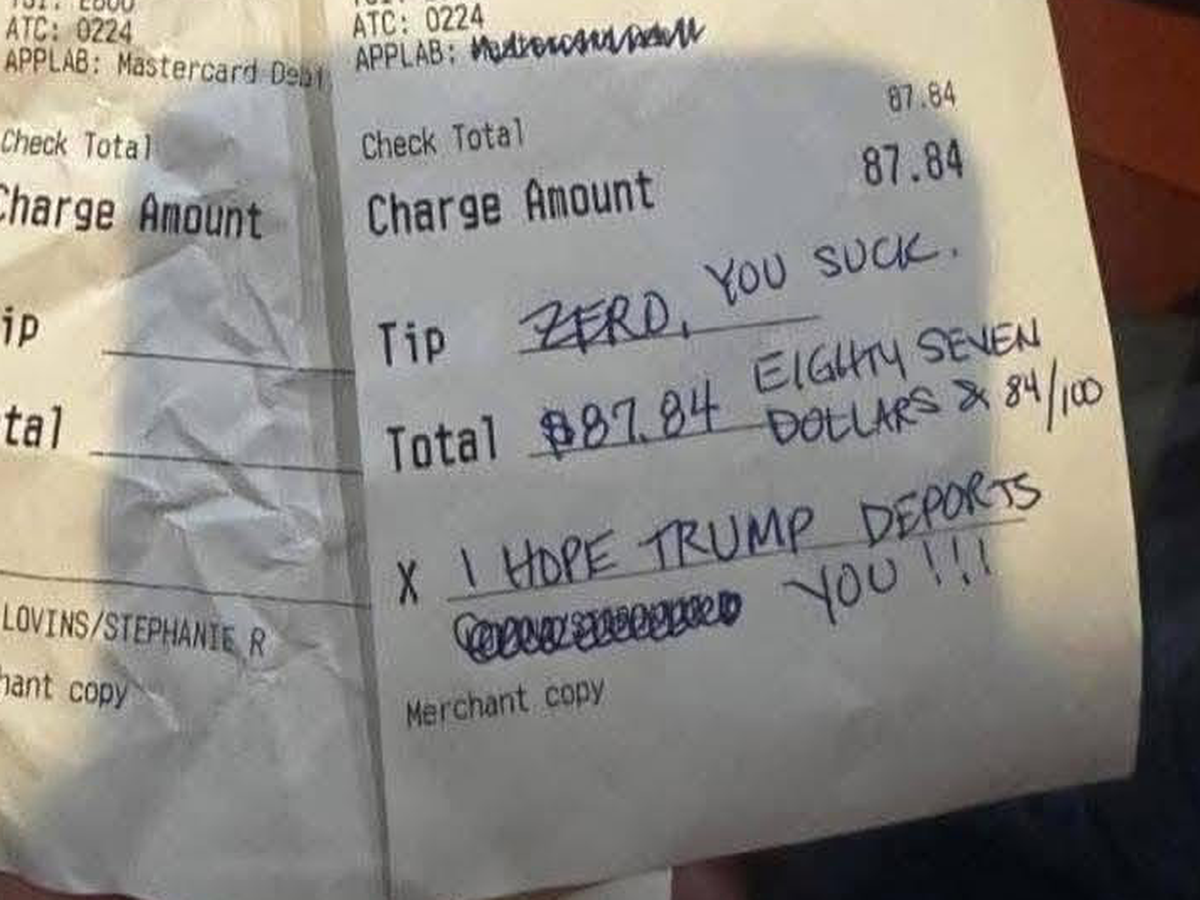 ATC: 0224
APPLAB: Mastercard Debi
Check Total
Charge Amount
ip
tal
LOVINS/STEPHANIE R
hant copy
ATC: 0224
APPLAB:
Check Total 87.84
Charge Amount 87.84
Tip ZERO, YOU SUCK.
Total $87.84 EIGHTY SEVEN
DOLLARS & 84/100
X I HOPE TRUMP DEPORTS
YOU!!!
Merchant copy